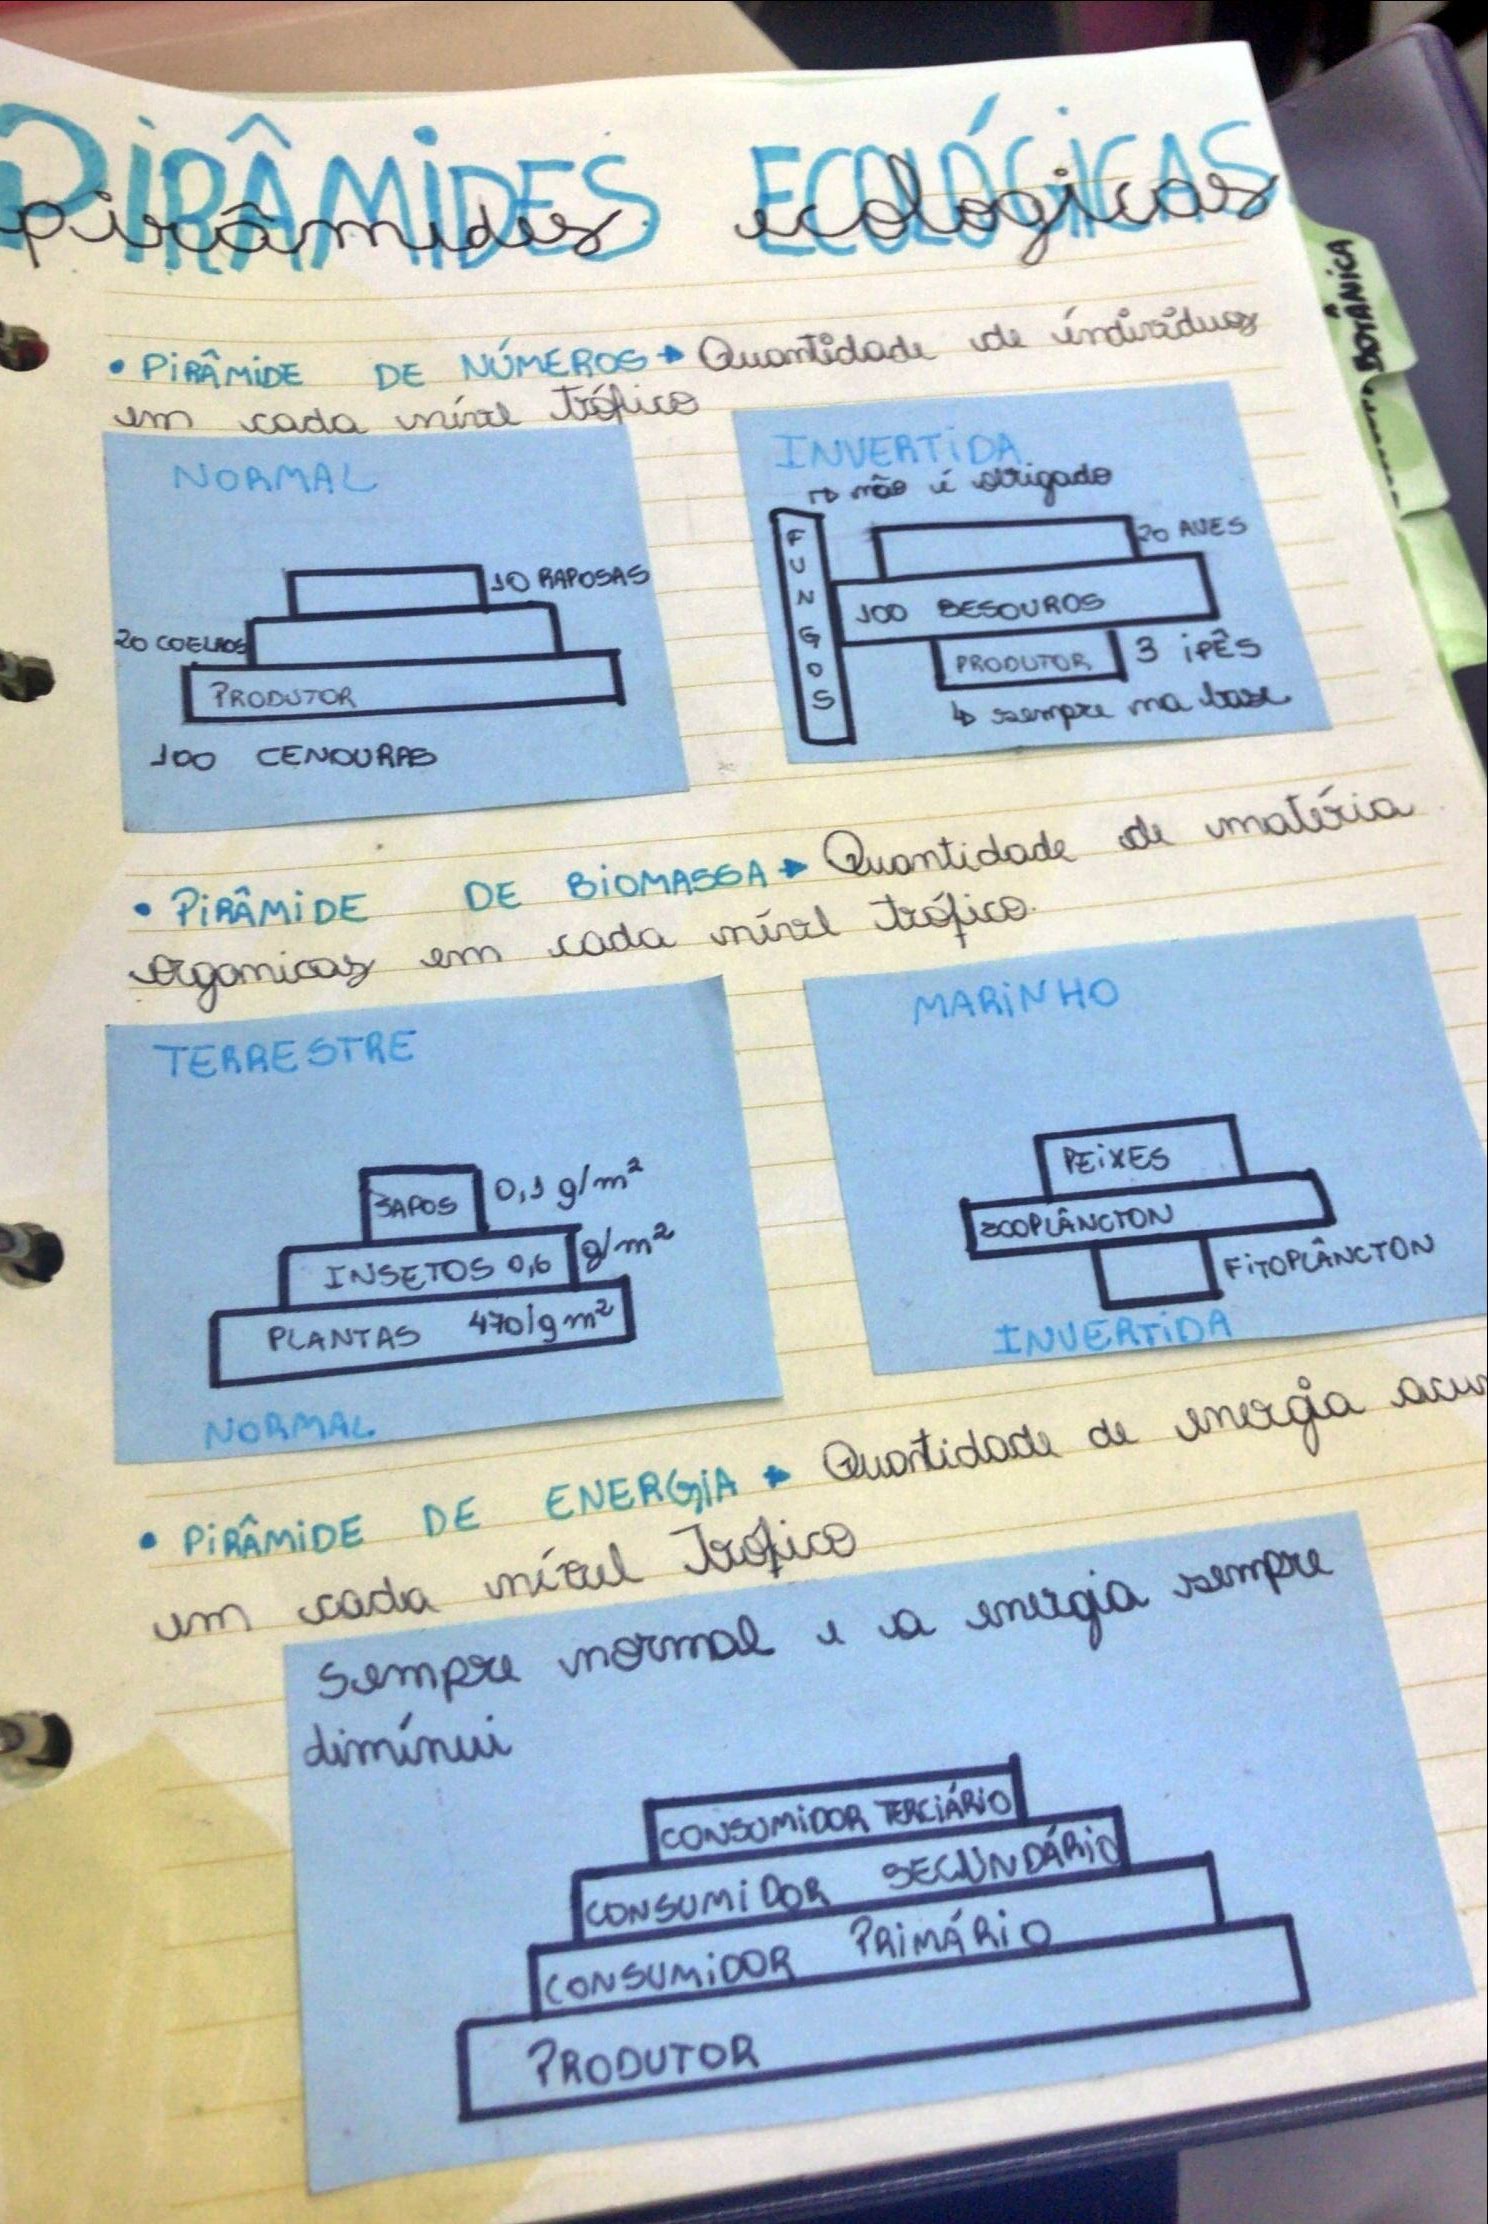 PIRÂMIDES ECOLÓGICAS
pirâmides ecologicas
• PIRÂMIDE DE NÚMEROS → Quantidade de indivíduos
em cada nível trófico
NORMAL
10 RAPOSAS
20 COELHOS
PRODUTOR
100 CENOURAS
INVERTIDA
↳ não é obrigado
FUNGOS
20 AVES
100 BESOUROS
PRODUTOR 3 IPÊS
↳ sempre na base
• PIRÂMIDE DE BIOMASSA → Quantidade de matéria
organicas em cada nível trófico.
TERRESTRE
SAPOS 0,1 g/m²
INSETOS 0,6 g/m²
PLANTAS 470/g m²
NORMAL
MARINHO
PEIXES
ZOOPLÂNCTON
FITOPLÂNCTON
INVERTIDA
• PIRÂMIDE DE ENERGIA → Quantidade de energia acu
em cada nível Trófico
Sempre normal e a energia sempre
diminui
CONSUMIDOR TERCIÁRIO
CONSUMIDOR SECUNDÁRIO
CONSUMIDOR PRIMÁRIO
PRODUTOR
BOTÂNICA